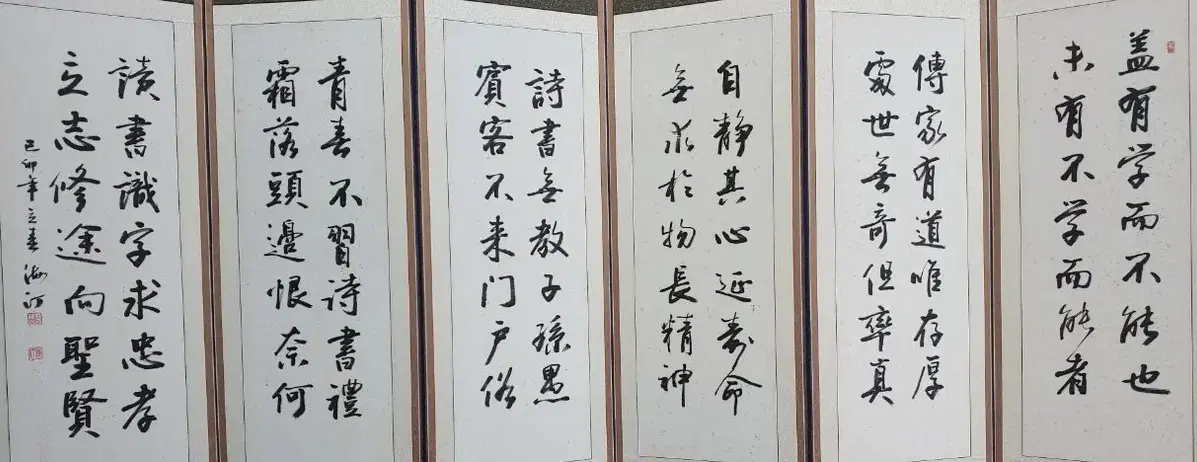 盖有学而不能也
未有不学而能者
傳家有道唯存厚
處世無奇但率真
自静其心延壽命
無求於物長精神
詩書無教子孫愚
賓客不来门户俗
青春不習詩書禮
霜落頭邊恨奈何
讀書識字求忠孝
立志修途向聖賢
己卯年立春